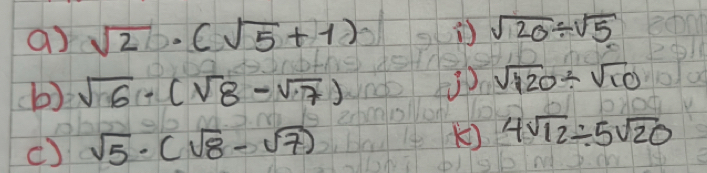 a) √2 · (√5 + 1)
b) √6 · (√8 - √7)
c) √5 · (√8 - √7)
i) √20 ÷ √5
j) √120 ÷ √10
k) 4√12 ÷ 5√20